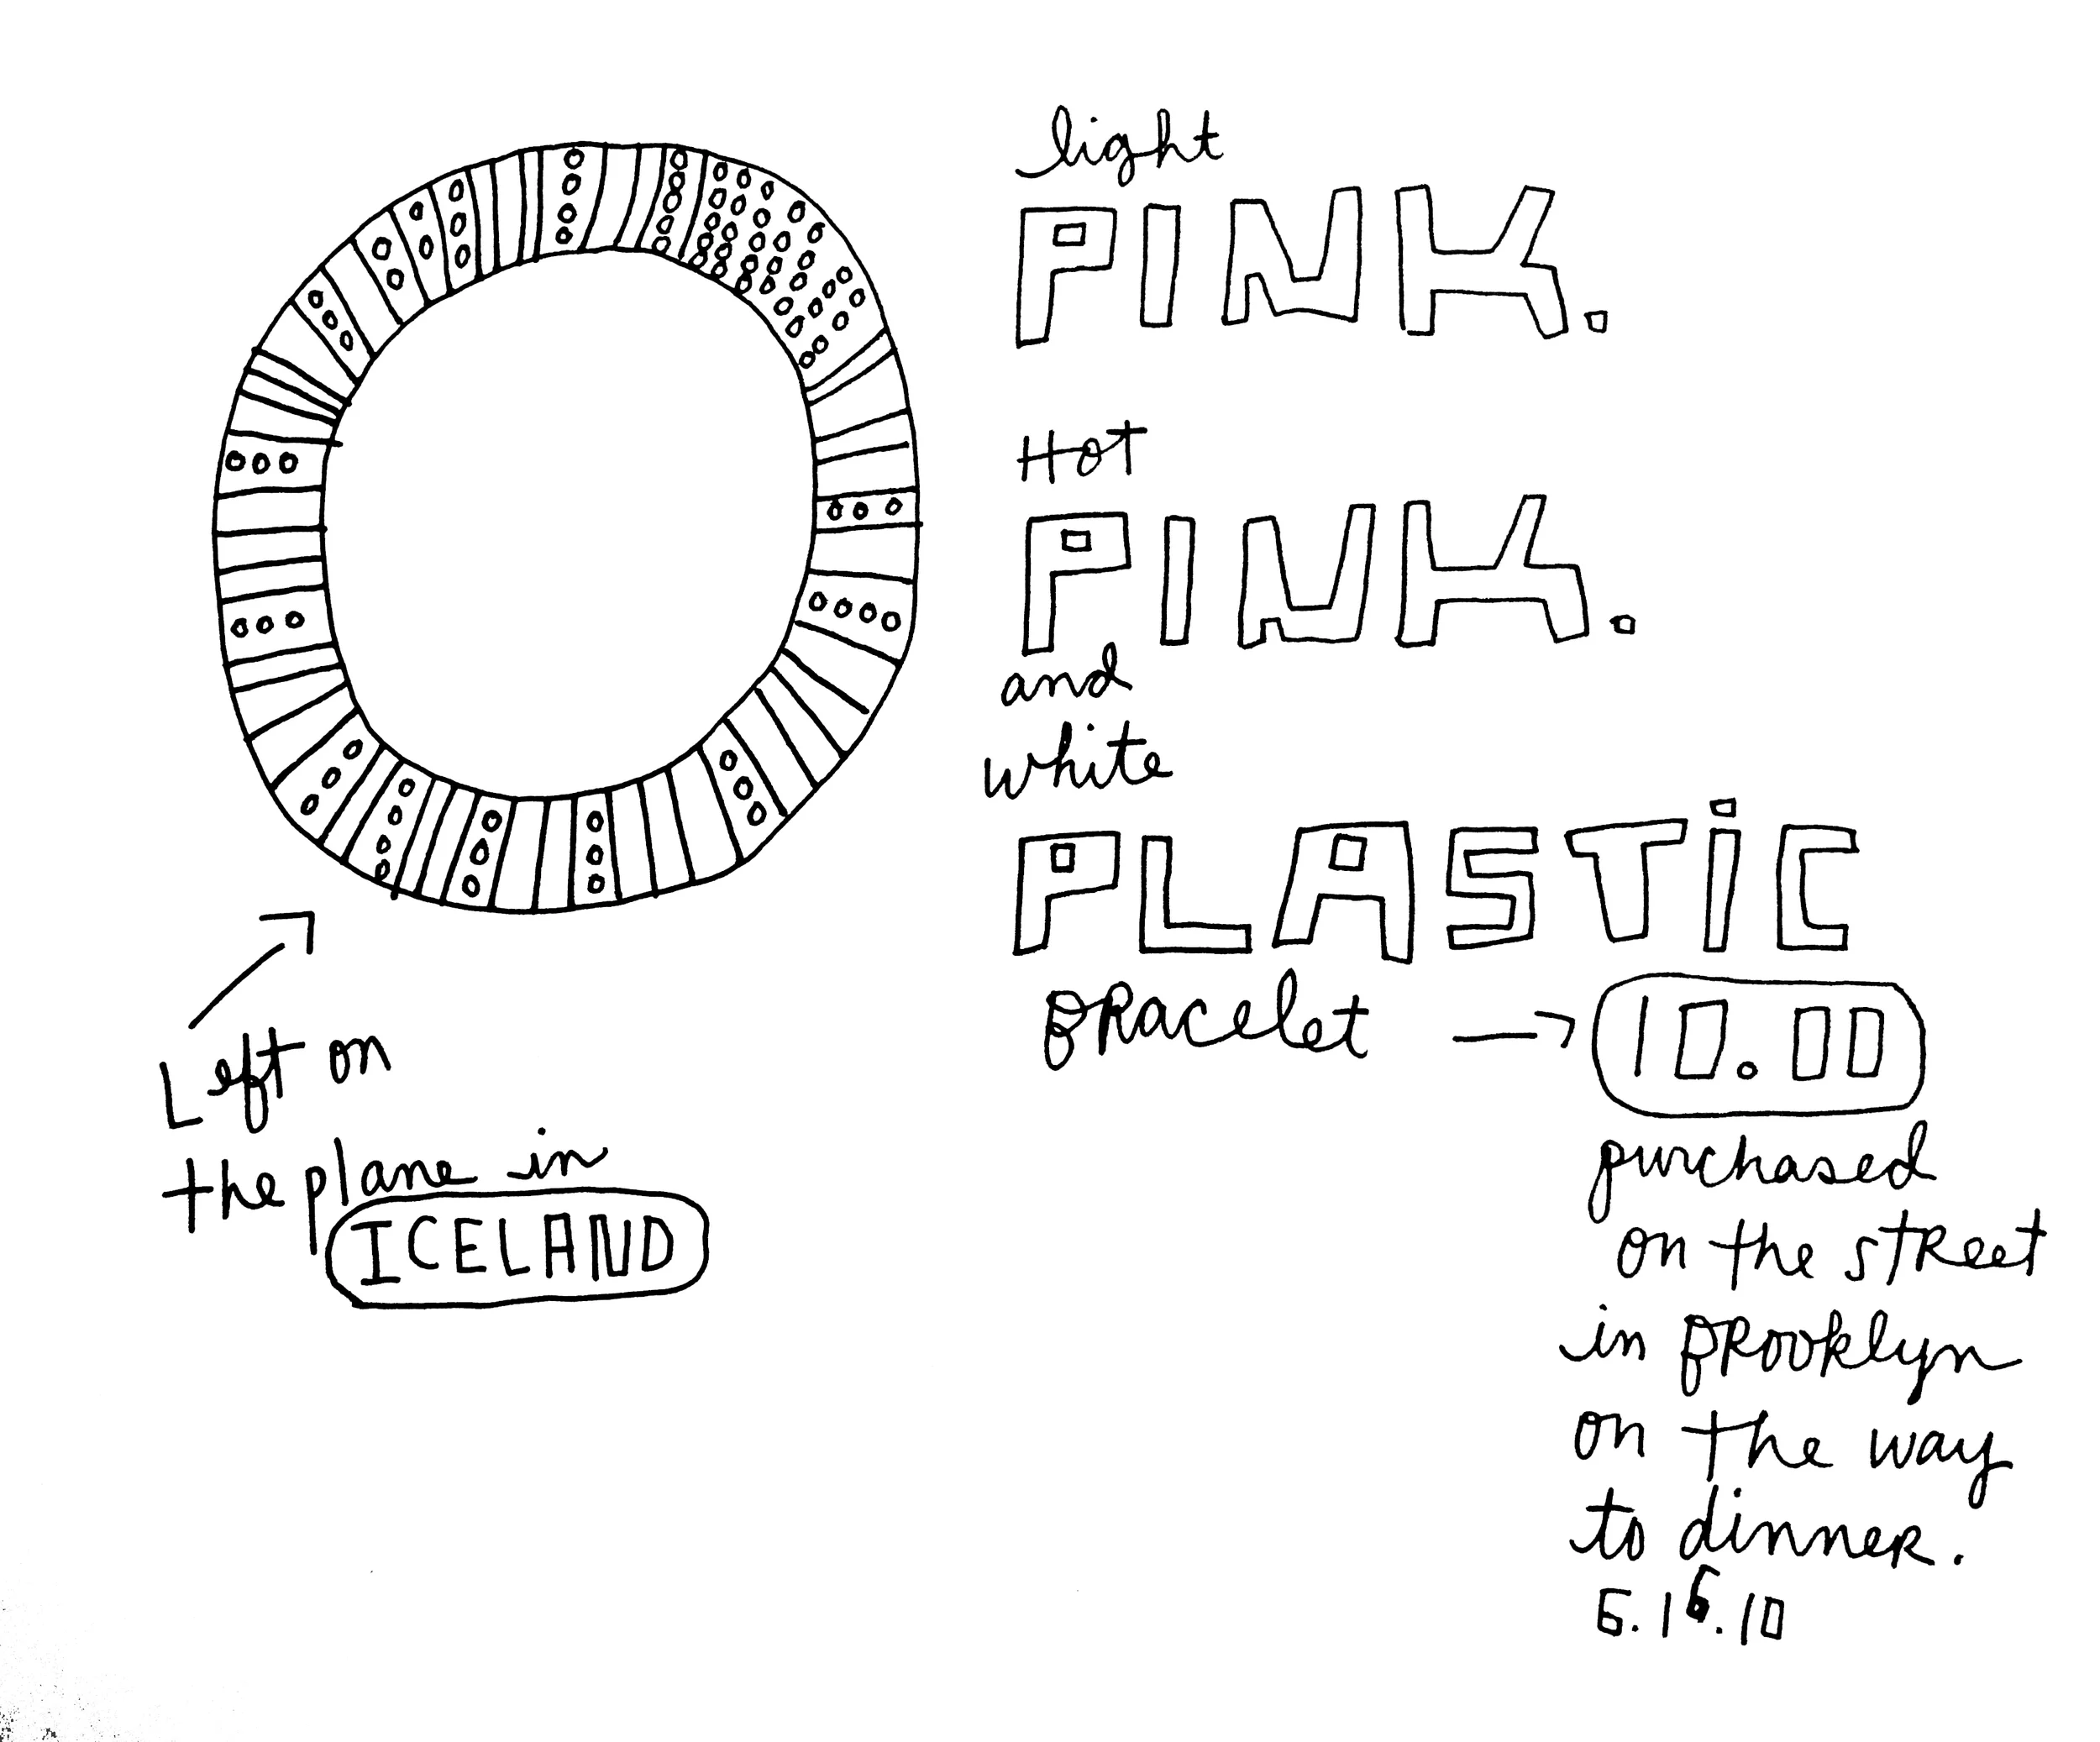 light
PINK.
Hot
PINK.
and
white
PLASTiC
bracelet → 10.00
purchased
on the street
in brooklyn
on the way
to dinner.
6.16.10
Left on
the plane in
ICELAND